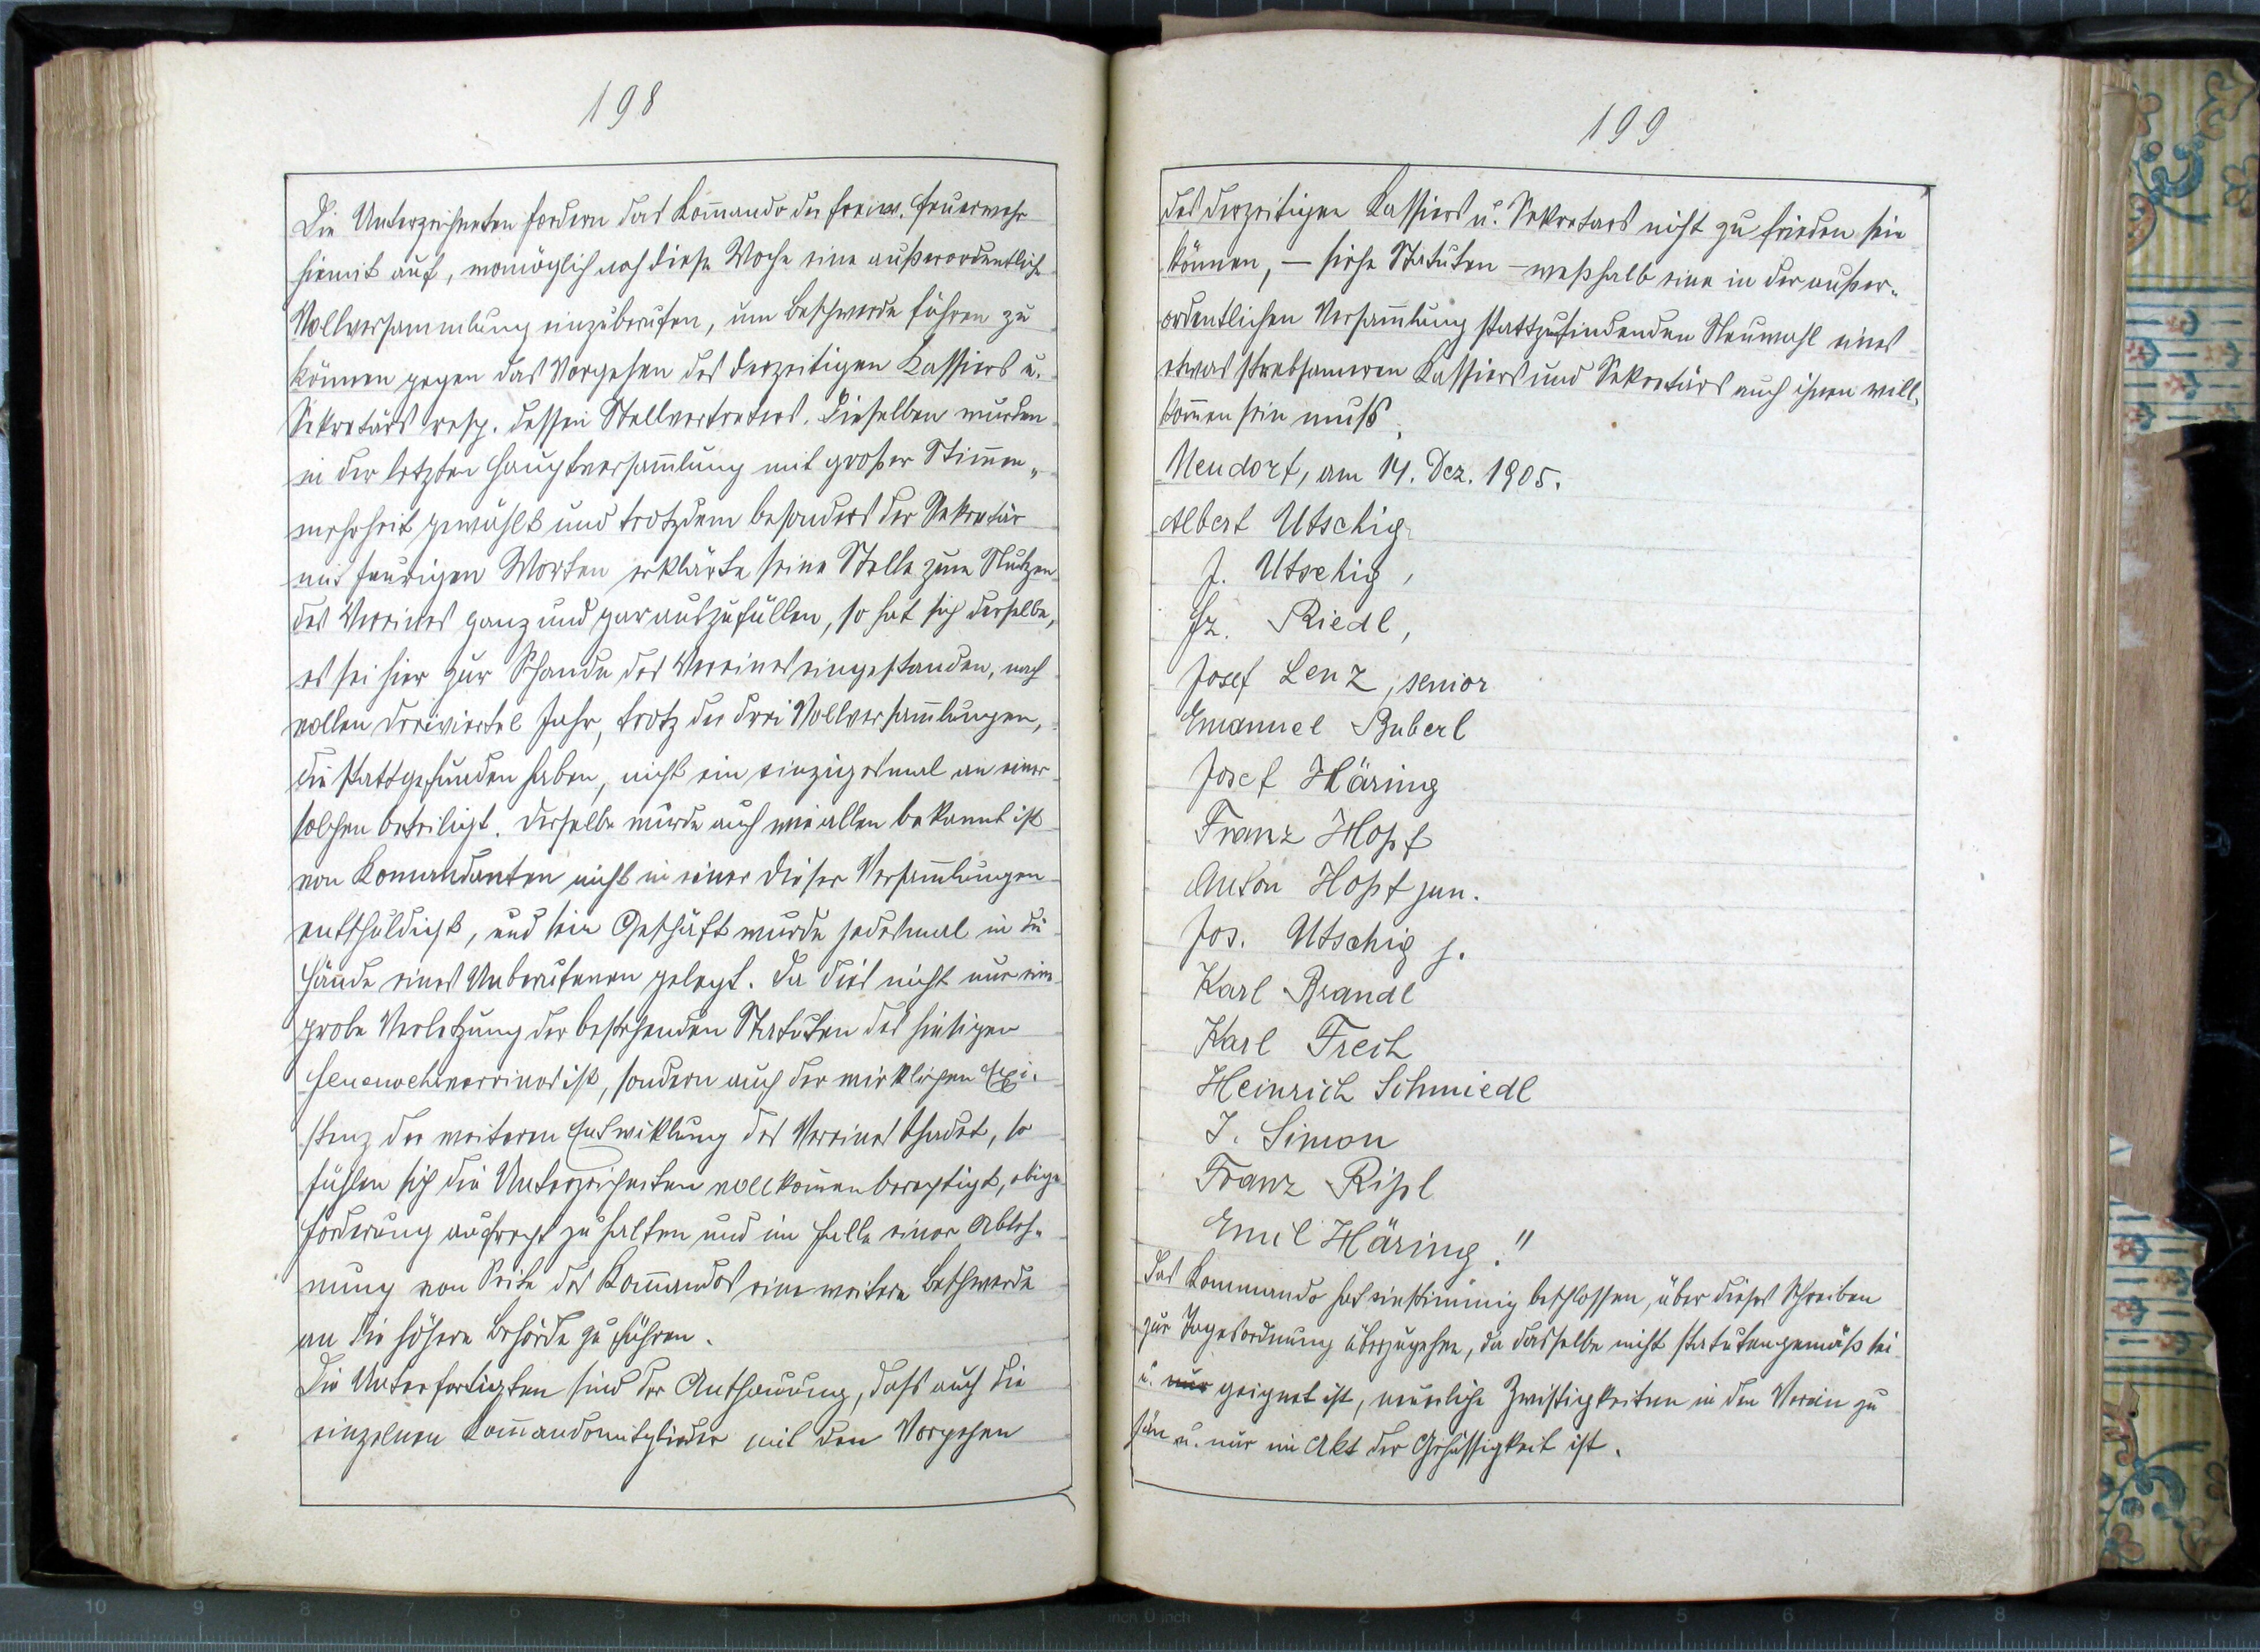 198
Die Unterzeichneten fordern das Kom̄ando der freiw. Feuerwehr
hiemit auf, womöglich noch diese Woche eine außerordentliche
Vollversammlung einzuberufen, um Beschwerde führen zu
können gegen das Vorgehen des derzeitigen Kassiers u.
Sekretärs resp. dessen Stellvertreters. Dieselben wurden
in der letzten Hauptversam̄lung mit großer Stim̄en„
mehrheit gewählt und trotzdem besonders der Sekretär
mit feurigen Worten erklärte seine Stelle zum Nutzen
des Vereines ganz und gar auszufüllen, so hat sich derselbe,
es sei hier zur Schande des Vereines eingestanden, nach
vollen dreiviertel Jahr, trotz der drei Vollversam̄lungen,
die stattgefunden haben, nicht ein einzigesmal an einer
solchen beteiligt. Derselbe wurde auch wie allen bekannt ist
von Komandanten nicht in einer dieser Versam̄lungen
entschuldigt, und sein Geschäft wurde jedesmal in die
Hände eines Unberufenen gelegt. Da dies nicht nur eine
grobe Verletzung der bestehenden Statuten des hiesigen
Feuerwehrvereines ist, sondern auch der wirklichen Exi-
stenz der weiteren Entwiklung des Vereines schadet, so
fühlen sich die Unterzeichneten vollkom̄en berechtigt, obige
Forderung aufrecht zu halten und im Falle einer Ableh„
nung von Seite des Kom̄andos eine weitere Beschwerde
an die höhere Behörde zu führen.
Die Unterfertigten sind der Anschauung, daß auch die
einzelnen Kom̄andomitglieder mit den Vorgehen
199
des derzeitigen Kassiers u. Sekretars nicht zu frieden sein
können, — siehe Statuten — weßhalb eine in der außer„
ordentlichen Versam̄lung stattzufindenden Neuwahl eines
etwas strebsameren Kassiers und Sekretärs auch ihnen will„
kom̄en sein muß.
Neudorf, am 14. Dez. 1905.
Albert Utschig
J. Utschig,
Fz. Riedl,
Josef Lenz, senior
Emanuel Buberl
Josef Häring
Franz Hopf
Anton Hopf jun.
Jos. Utschig j.
Karl Brandl
Karl Frech
Heinrich Schmiedl
J. Simon
Franz Ripl
Emil Häring."
Das Kommando hat einstimmig beschlossen, über dieses Schreiben
zur Tagesordnung überzugehen, da dasselbe nicht statutengemäß sei
u. nur geignet ist, neuerliche Zwistigkeiten in den Verein zu
sän u. nur ein Akt der Gehässigkeit ist.